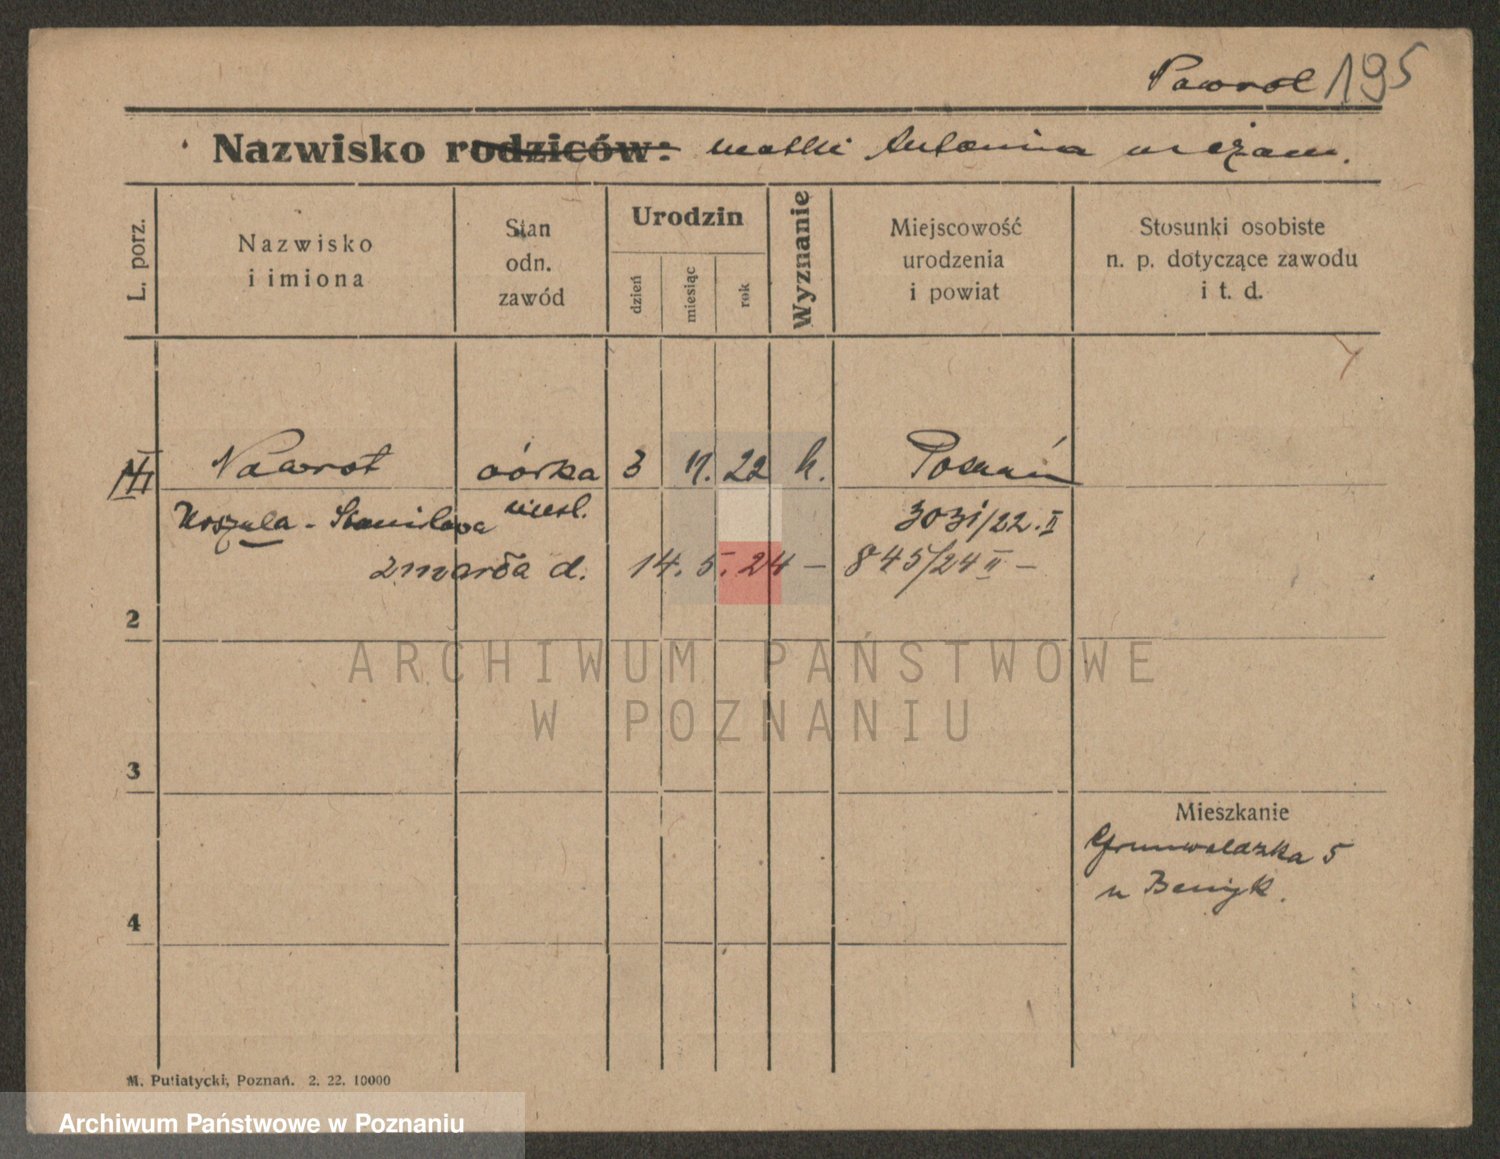 Nawrot 195
Nazwisko rodziców: matki Antonina niezam.
L. porz.
Nazwisko
i imiona
Stan
odn.
zawód
Urodzin
dzień
miesiąc
rok
Wyznanie
Miejscowość
urodzenia
i powiat
Stosunki osobiste
n. p. dotyczące zawodu
i t. d.
Nawrot córka 3 11. 22 k. Poznań
Urszula - Stanisława nieśl. 3031/22. II
zmarła d. 14. 5. 24 – 845/24 II –
2
3
Mieszkanie
Grunwaldzka 5
u
4
M. Putiatycki, Poznań. 2. 22. 10000
ARCHIWUM PAŃSTWOWE
W POZNANIU
Archiwum Państwowe w Poznaniu